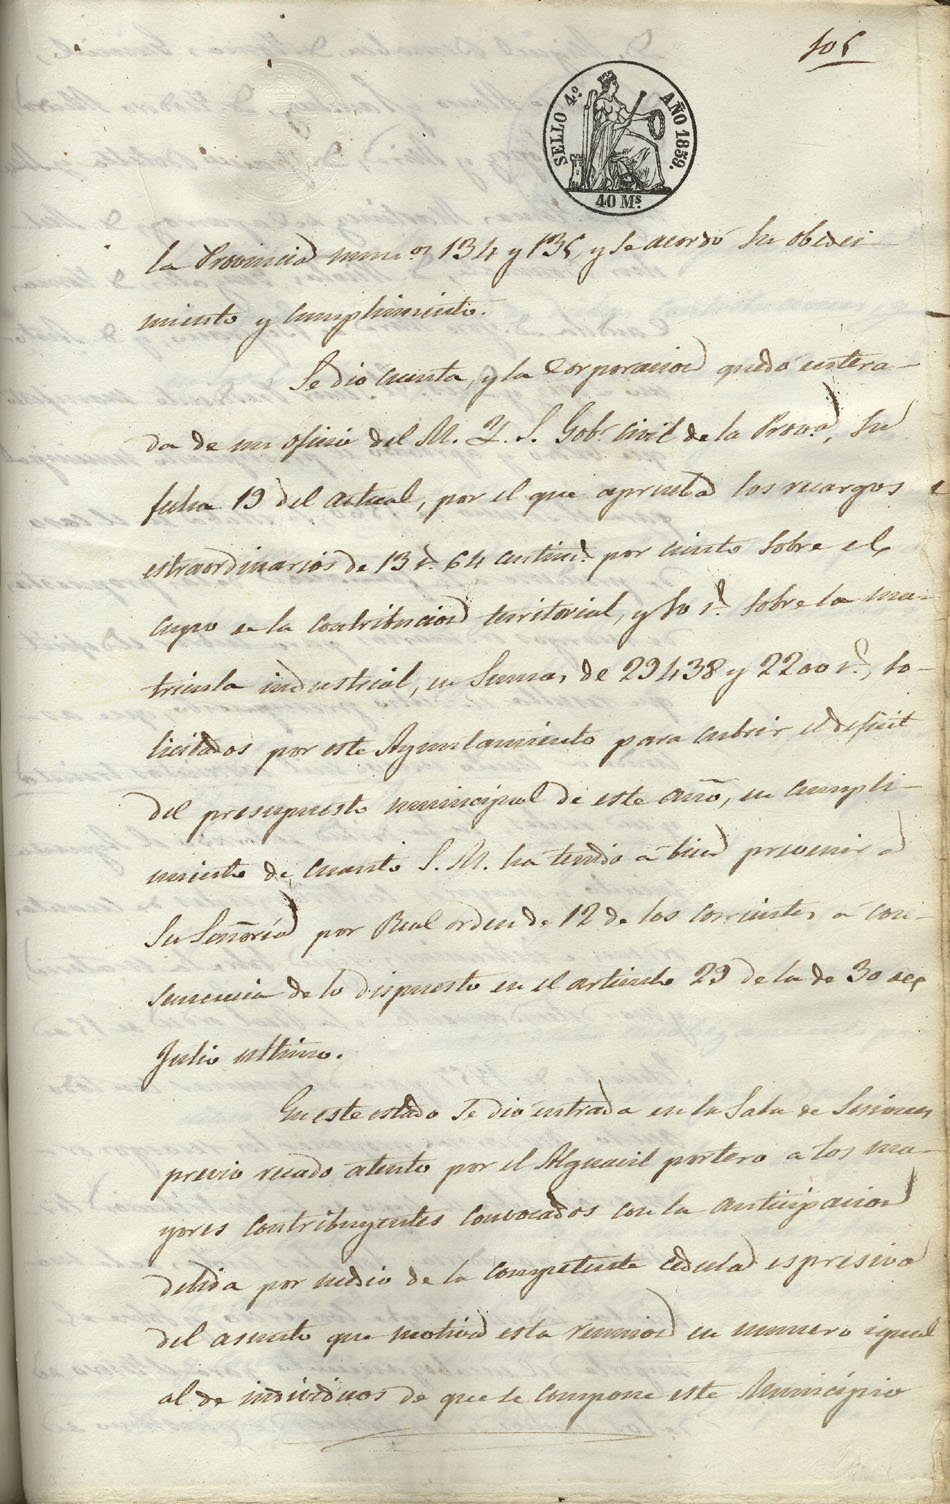 105
SELLO 4.º AÑO 1859.
40 Ms.
la Provincia num.os 134 y 135, y se acordó su obedeci
miento y cumplimiento.
Se dio cuenta, y la Corporacion quedó entera-
da de un oficio del M. Y. S. Gob.r Civil de la Prov.a, su
fecha 19 del actual, por el que aprueba los recargos
estraordinarios de 13 r.s 64 centim.s por ciento sobre el
cupo de la contribucion territorial, y 10 r.s sobre la ma-
tricula industrial, en sumas de 29438 y 2200 r.s, so-
licitados por este Ayuntamiento para cubrir el deficit
del presupuesto municipal de este año, en cumpli-
miento de cuanto S. M. ha tenido á bien prevenir á
Su Señoría por Real orden de 12 de los corrientes á con-
secuencia de lo dispuesto en el articulo 29 de la de 30 de
Julio ultimo.
En este estado se dio entrada en la Sala de Sesiones
previo recado atento por el Alguacil portero a los ma-
yores contribuyentes convocados con la anticipacion
debida por medio de la competente cedula espresiva
del asunto que motiva esta reunion en numero igual
al de individuos de que se compone este Municipio